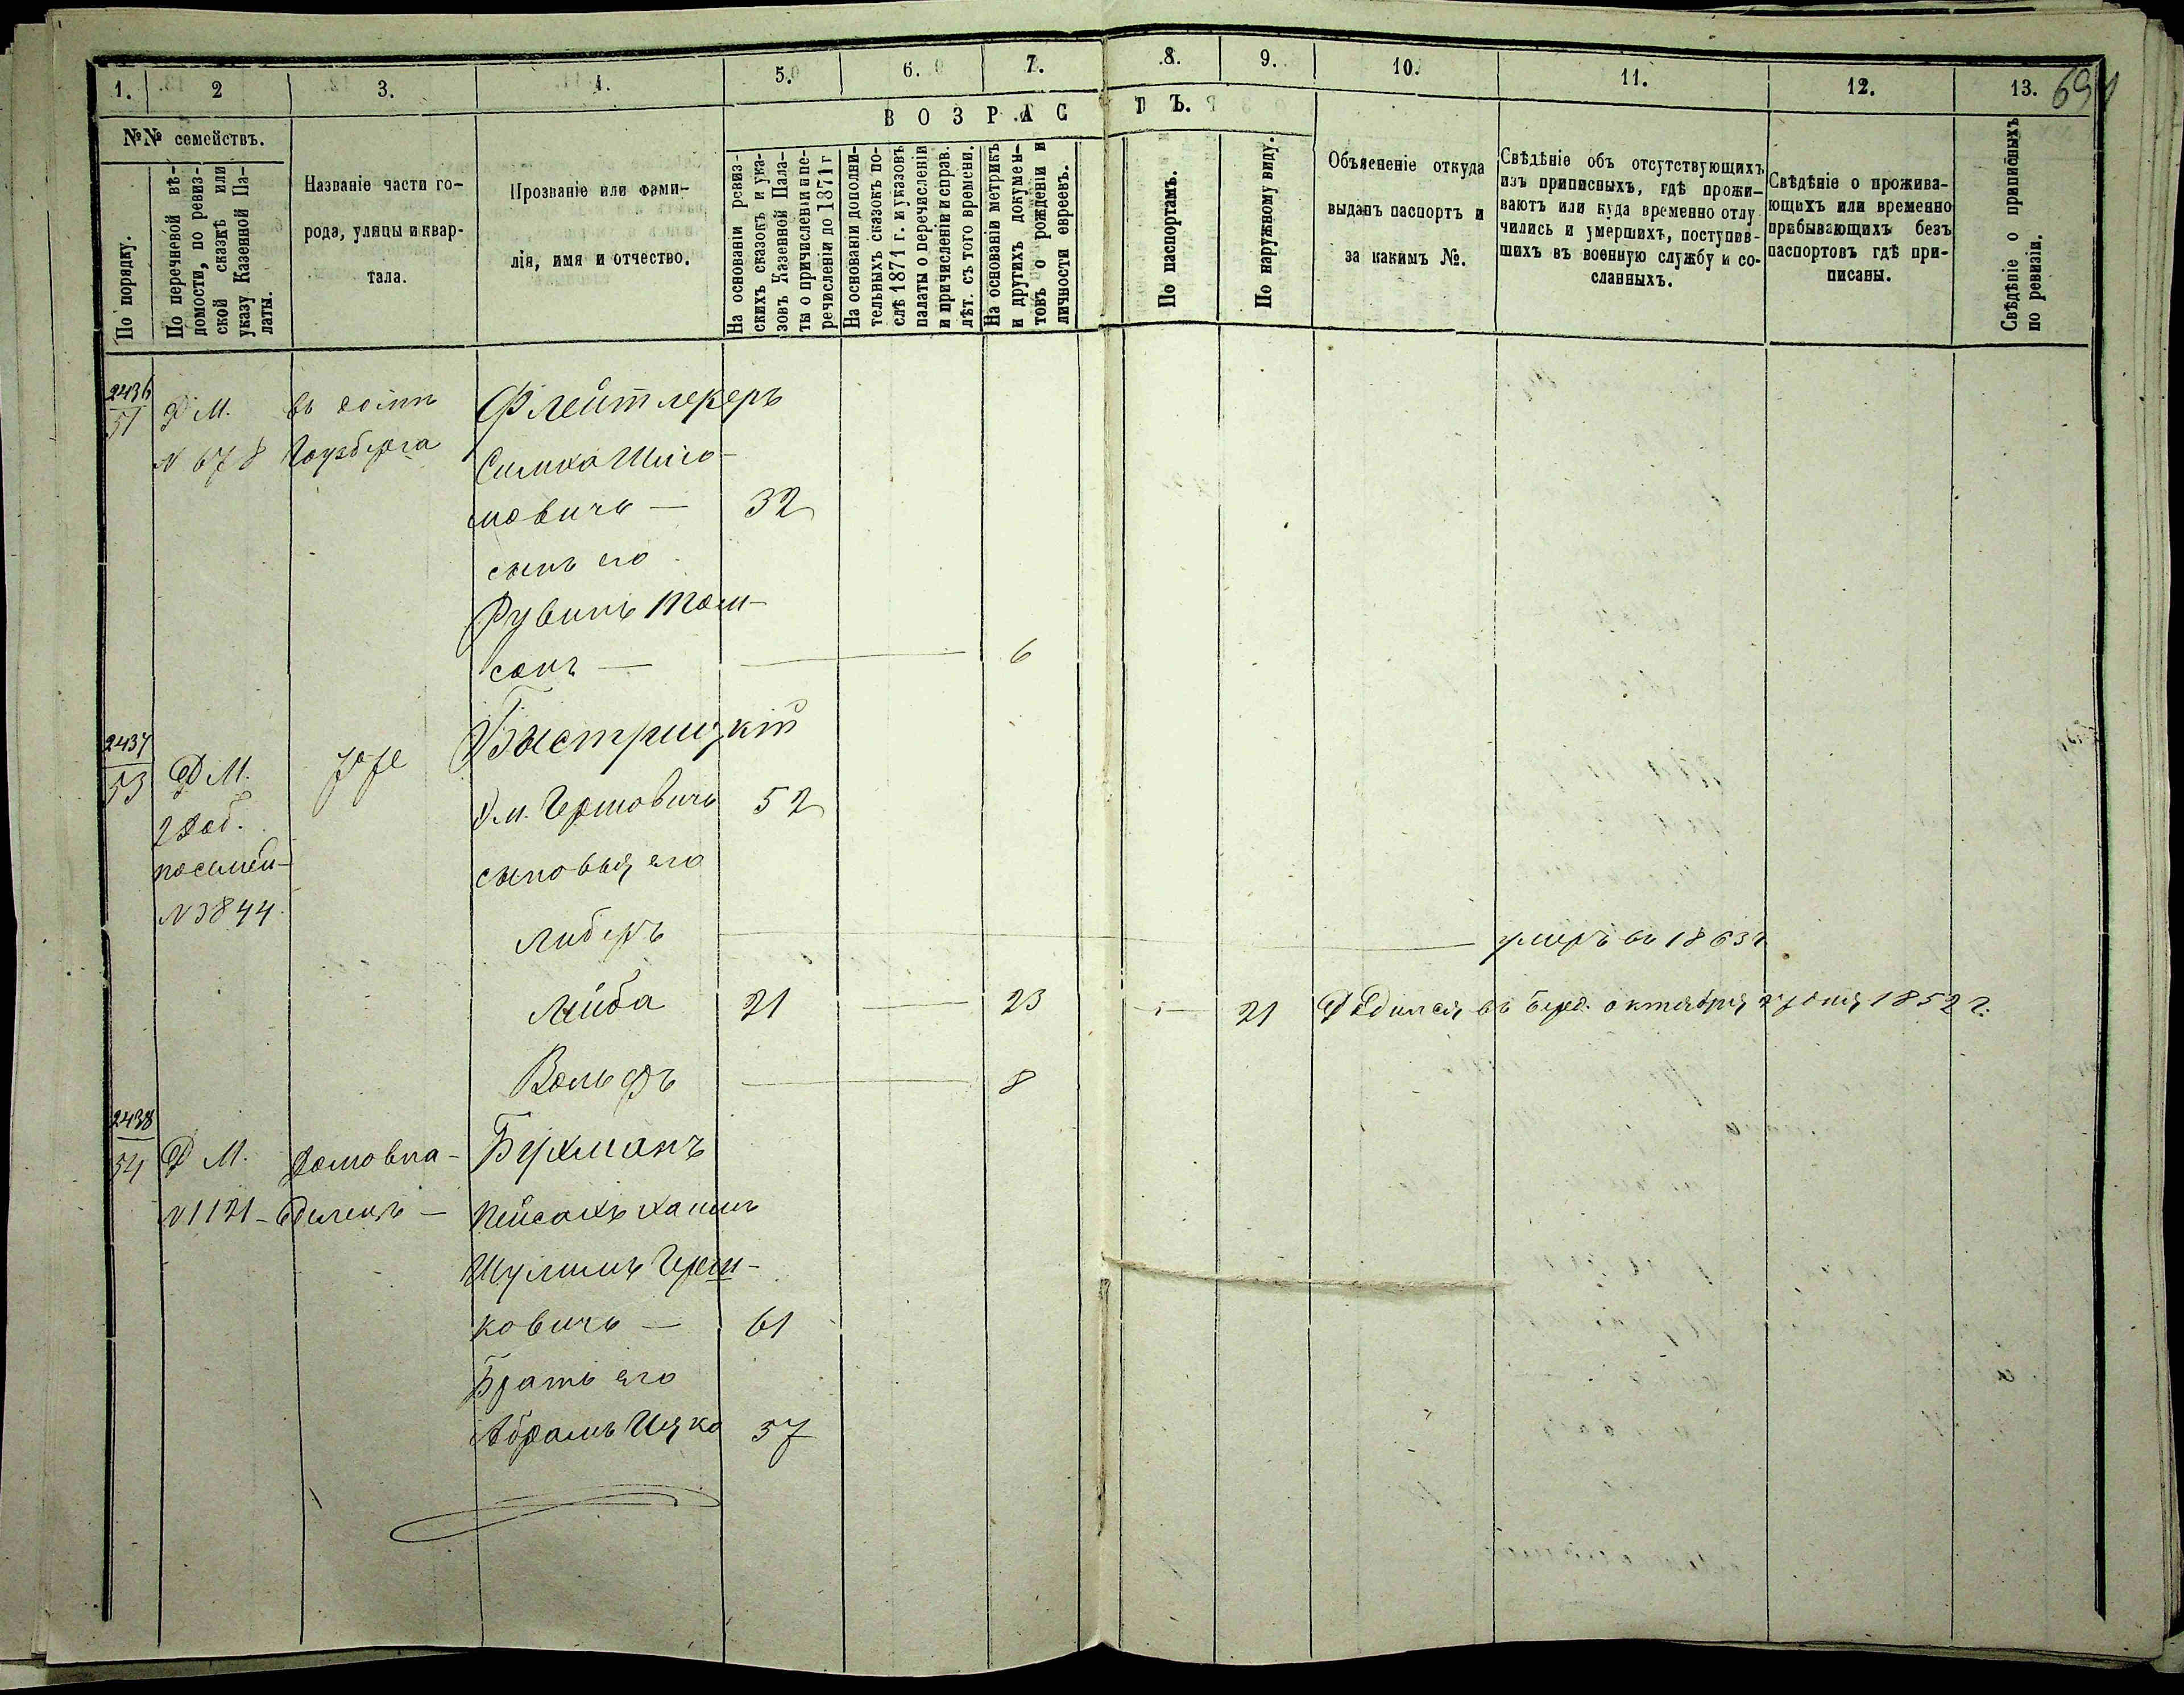 69
1. 2 3. 4. 5. 6. 7. 8. 9. 10. 11. 12. 13.
№№ семействъ.
По порядку.
По перечневой вѣ-
домости, по ревиз-
ской сказкѣ или
указу Казенной Па-
латы.
Названіе части го-
рода, улицы и квар-
тала.
Прозваніе или фами-
лія, имя и отчество.
ВОЗРАСТЪ.
На основаніи ревиз-
скихъ сказокъ и ука-
зовъ Казенной Пала-
ты о причисленіи и пе-
речисленіи до 1871 г
На основаніи дополни-
тельныхъ сказокъ по-
слѣ 1871 г. и указовъ
палаты о перечисленіи
и причисленіи и справ.
лѣт. съ того времени.
На основаніи метрикъ
и другихъ докумен-
товъ о рожденіи и
личности евреевъ.
По паспортамъ.
По наружному виду.
Объясненіе откуда
выданъ паспортъ и
за какимъ №.
Свѣдѣніе объ отсутствующихъ
изъ приписныхъ, гдѣ прожи-
ваютъ или куда временно отлу
чились и умершихъ, поступив-
шихъ въ военную службу и со-
сланныхъ.
Свѣдѣніе о прожива-
ющихъ или временно
пребывающихъ безъ
паспортовъ гдѣ при-
писаны.
Свѣдѣніе о приписныхъ
по ревизіи.
2436
51 Р М. въ домѣ Флейтлекеръ
N 678 Гаузберга Симха Шмго-
мовичъ — 32
сынъ его
Рувинъ Там-
санъ — 6
Быстрицкій
2437
53 Р М. Гершовичъ 52
2 Доб.
посемей-
N 3844
сыновья его
Либеръ — умеръ въ 1863 г
Лейба 21 — 23 — 21 Родился въ октября 1852 г.
Вольфъ — 8
2438
54 Р М. Домовла- Бухманъ
N 1121 - делецъ — Пейсахъ Хаимъ
Шулимъ Герш-
ковичъ — 61
Братъ его
Абрамъ Ицко 57